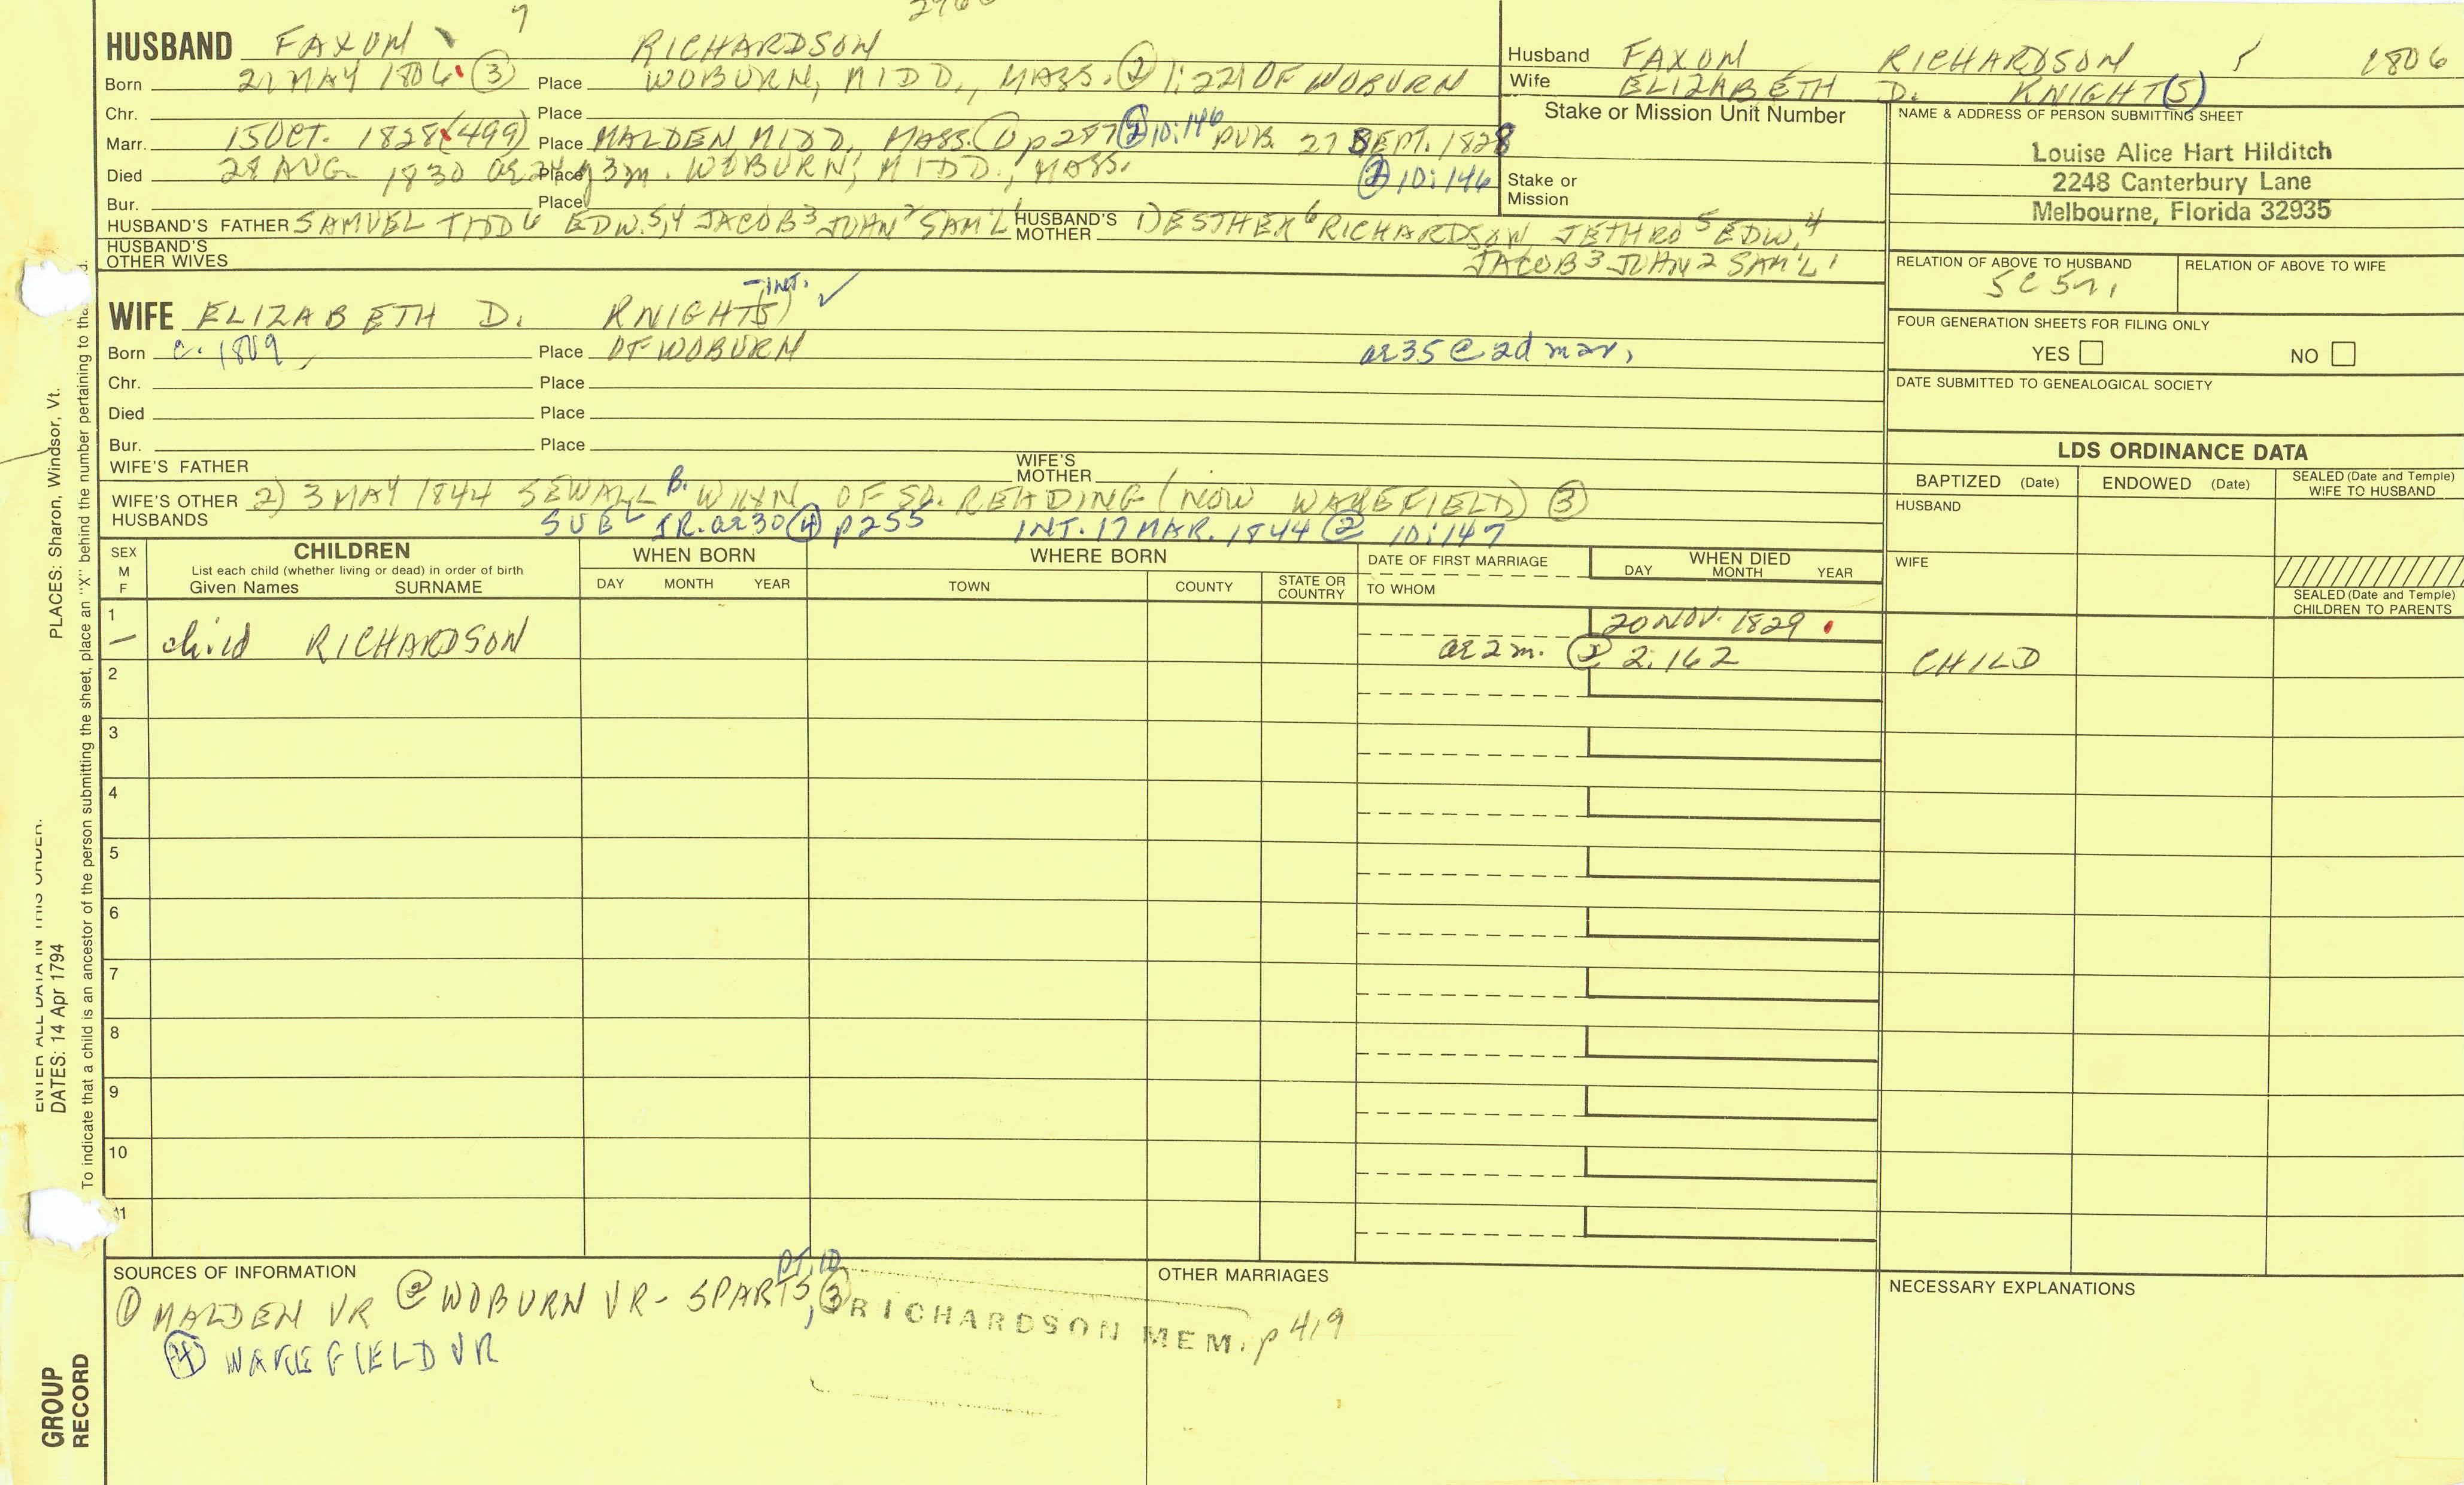 7
HUSBAND FAXON RICHARDSON
Born 21 MAY 1806 ③ Place WOBURN, MIDD., MASS. ② 1:221 OF WOBURN
Chr. Place
Marr. 15 OCT. 1828 (499) Place MALDEN, MIDD., MASS. ① p287 ② 10:146 PUB. 27 SEPT. 1828
Died 28 AUG. 1830 ae 24y 3m. Place WOBURN, MIDD., MASS. ② 10:146
Bur. Place
HUSBAND'S FATHER SAMUEL TIDD6 EDW.5,4 JACOB3 JOHN2 SAM'L1 HUSBAND'S MOTHER 1) ESTHER6 RICHARDSON, JETHRO5 EDW.4
JACOB3 JOHN2 SAM'L1
HUSBAND'S OTHER WIVES
Husband FAXON RICHARDSON 1806
Wife ELIZABETH D. KNIGHT(S)
Stake or Mission Unit Number
Stake or Mission
NAME & ADDRESS OF PERSON SUBMITTING SHEET
Louise Alice Hart Hilditch
2248 Canterbury Lane
Melbourne, Florida 32935
RELATION OF ABOVE TO HUSBAND
5C5r,
RELATION OF ABOVE TO WIFE
FOUR GENERATION SHEETS FOR FILING ONLY
YES NO
DATE SUBMITTED TO GENEALOGICAL SOCIETY
-INT. ✓
WIFE ELIZABETH D. KNIGHT(S)
Born c. 1809 Place OF WOBURN ae 35 @ 2d mar,
Chr. Place
Died Place
Bur. Place
WIFE'S FATHER WIFE'S MOTHER
WIFE'S OTHER HUSBANDS 2) 3 MAY 1844 SEWALL B. WYYN OF SO. READING (NOW WAKEFIELD) ③
JR. ae 30 ④ p255 INT. 17 MAR. 1844 ② 10:147
LDS ORDINANCE DATA
BAPTIZED (Date) ENDOWED (Date) SEALED (Date and Temple) WIFE TO HUSBAND
HUSBAND
WIFE
SEALED (Date and Temple) CHILDREN TO PARENTS
SEX M F
CHILDREN
List each child (whether living or dead) in order of birth
Given Names SURNAME
WHEN BORN
DAY MONTH YEAR
WHERE BORN
TOWN COUNTY STATE OR COUNTRY
DATE OF FIRST MARRIAGE
TO WHOM
WHEN DIED
DAY MONTH YEAR
1 20 NOV. 1829
— child RICHARDSON ae 2m. ② 2:162 CHILD
2
3
4
5
6
7
8
9
10
11
SOURCES OF INFORMATION
pt. 10
① MALDEN VR ② WOBURN VR - 5 PARTS, ③ RICHARDSON MEM. p 419
④ WAKEFIELD VR
OTHER MARRIAGES
NECESSARY EXPLANATIONS
PLACES: Sharon, Windsor, Vt.
ENTER ALL DATA IN THIS ORDER.
DATES: 14 Apr 1794
To indicate that a child is an ancestor of the person submitting the sheet, place an "X" behind the number pertaining to
GROUP RECORD